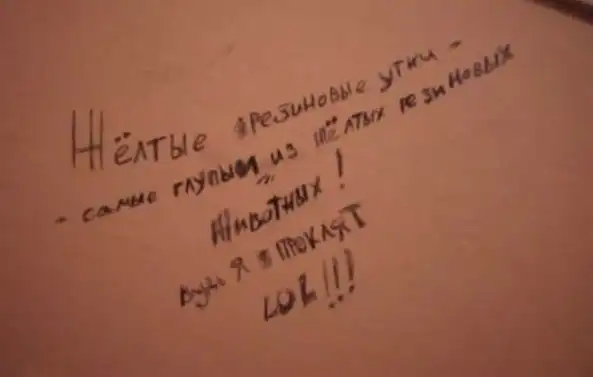 Жёлтые резиновые утки -
- самые глупые из жёлтых резиновых
животных!
Будь я проклят
LOL!!!